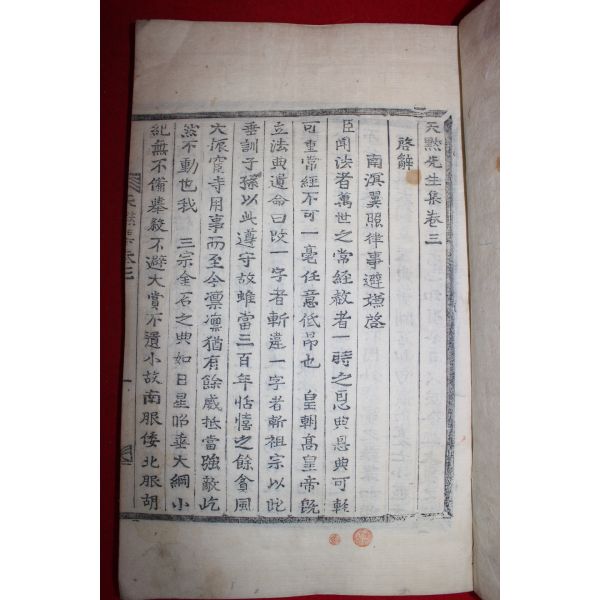 天默先生集卷三
啓辭
南溟翼照律事避嫌啓
臣聞法者萬世之常經赦者一時之恩典恩典可輕
可重常經不可一毫任意低昂也 皇朝高皇帝旣
立法典遺命曰改一字者斬違一字者斬祖宗以此
垂訓子孫以此遵守故雖當三百年恬憘之餘貪風
大振寶寺用事而至今凛凛猶有餘威抵當強敵屹
然不動也我 三宗金石之典如日星昭垂大綱小
紀無不備擧殺不避大賞不遺小故南服倭北服胡
天默集卷三
一